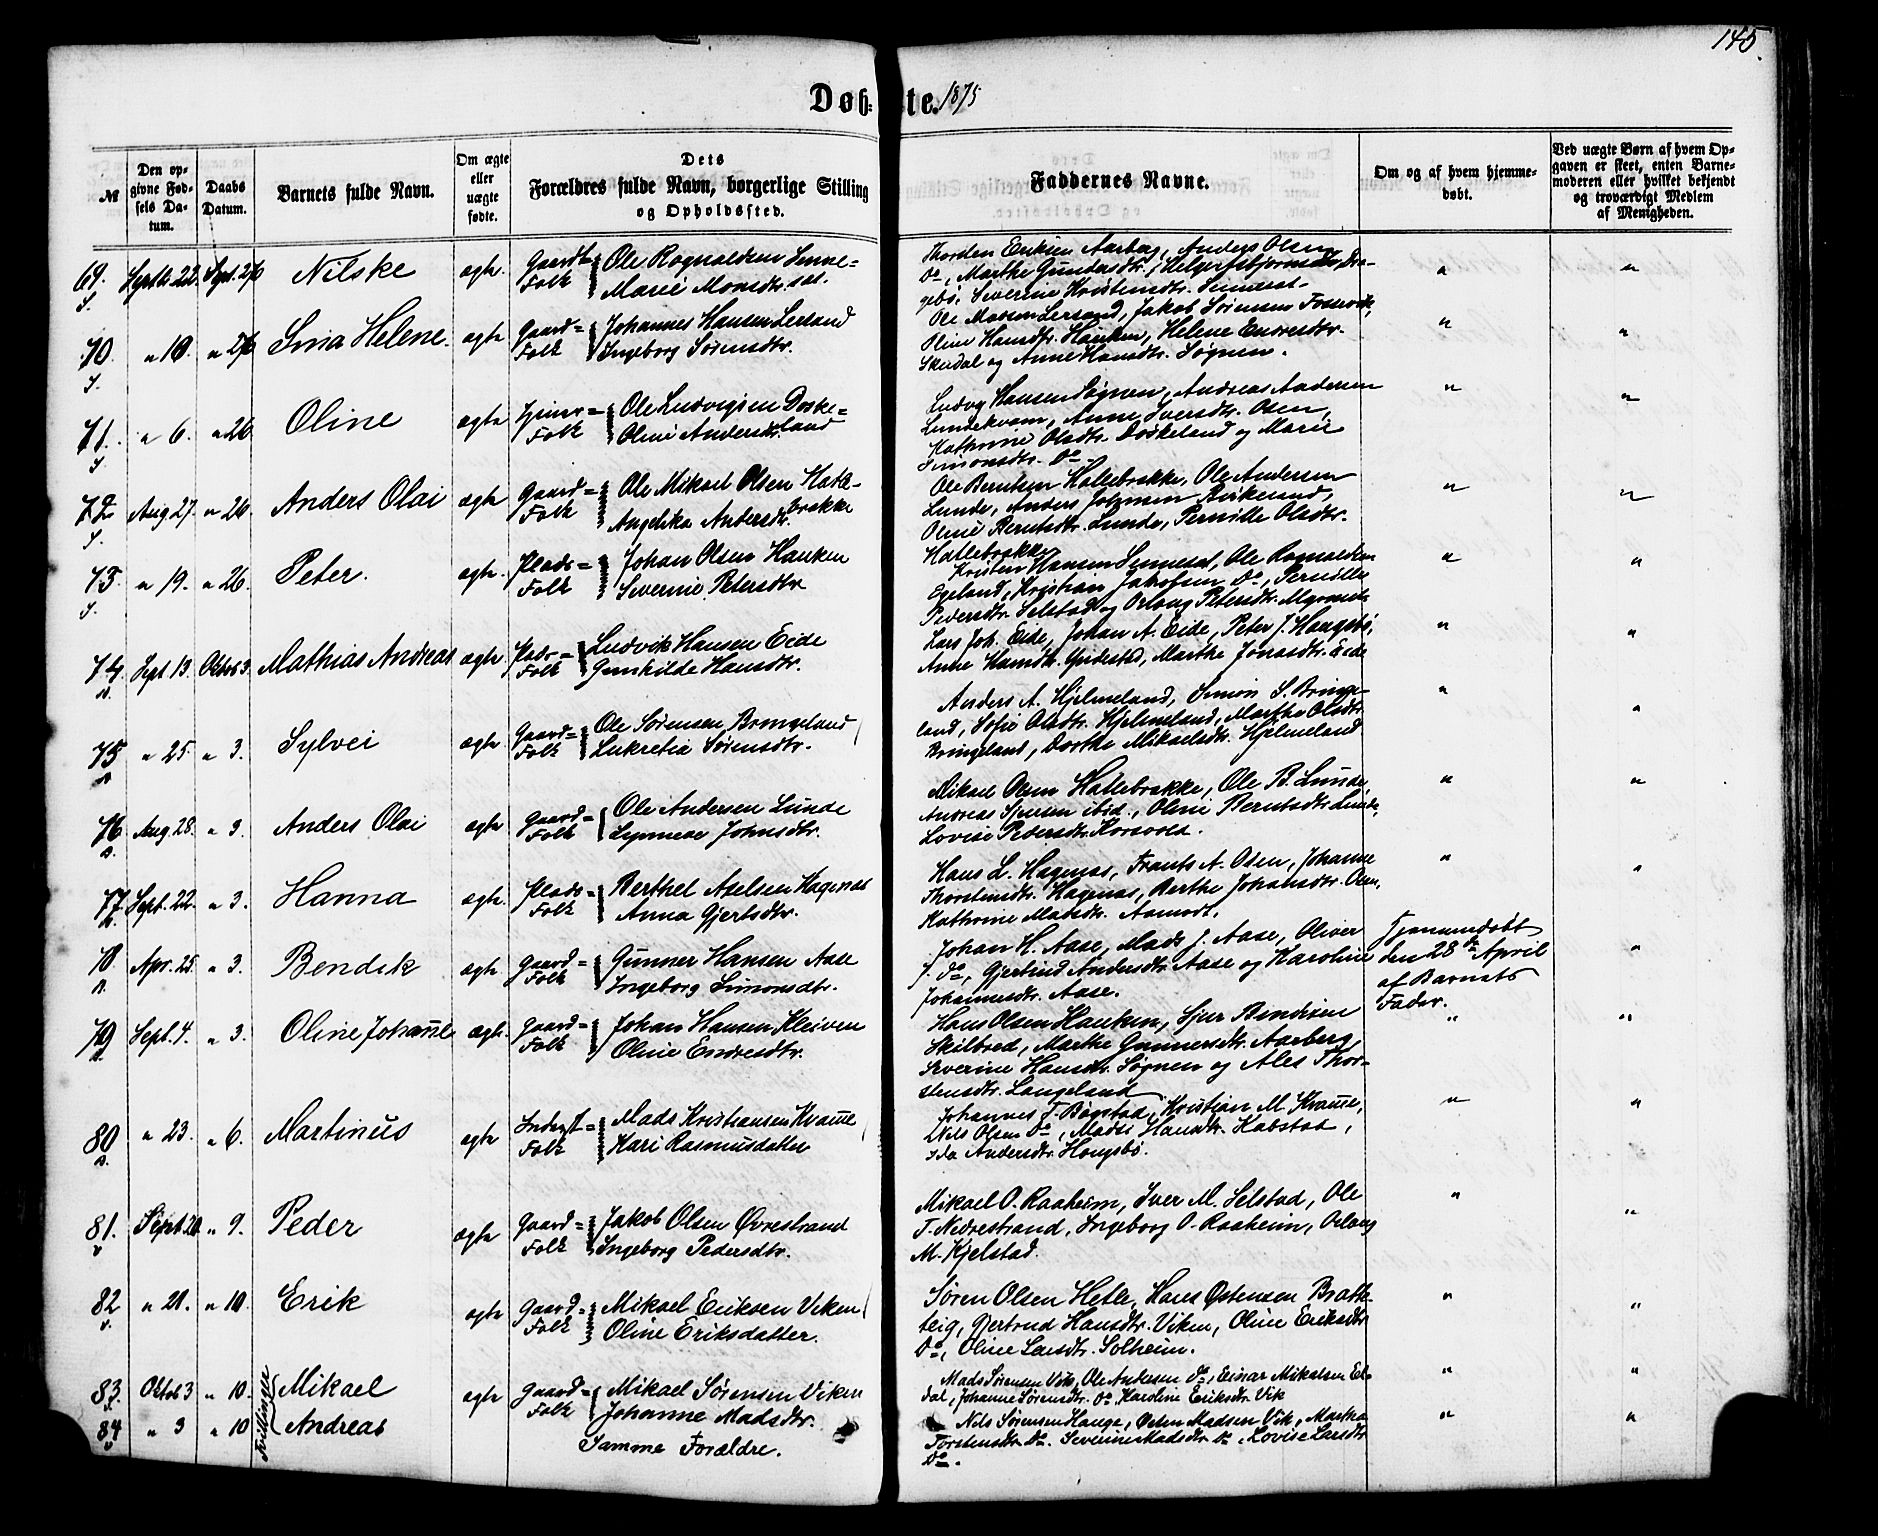 145.
Døbte. 1875
№
Den opgivne Fødsels Datum.
Daabs Datum.
Barnets fulde Navn.
Om ægte eller uægte fødte.
Dets Forældres fulde Navn, borgerlige Stilling og Opholdssted.
Faddernes Navne.
Om og af hvem hjemmedøbt.
Ved uægte Børn af hvem Opgaven er skeet, enten Barnemoderen eller hvilket bekjendt og troværdigt Medlem af Menigheden.
69. Septb 22. Sept. 26 Nilske ægte. Gaard= Folk Ole Rognaldsen Sunne=
Marie Monsdtr. sæt.
Thorsten Eriksen Aarberg, Anders Olsen
Do, Marthe Gundersdtr.,
Severine Kristensdtr. Sunnesæt.
70. " 10. " 26 Sina Helene. ægte Gaard= Folk Johannes Hansen Lersand
Ingeborg Sørensdtr.
Ole Monsen Lersand, Jakob Sørensen
Oline Hansdtr. Hauken, Helene Endresdtr.
Skudal og Anne Hansdtr. Søgnen.
71. " 6. " 26 Oline ægte Folk Ole Ludvigsen Doske=
Oline Andersdtr. land
Ludvig Hansen Søgnen, Andreas Andersen
Lundekvam, Anne Iversdtr. Osen,
Kathrine Olsdtr. Doskeland og Marie
Simonsdtr. Do.
72. Aug. 27. " 26. Anders Olai ægte Gaard= Folk Ole Mikael Olsen Hatle-
Angelika Andersdtr. brække
Ole Berntsen Hatlebrække, Ole Andersen
Lunde, Anders
Oline Berntsdtr. Lunde, Pernille Olsdtr.
Hatlebrække
73. " 19. " 26. Peter. ægte. Plads= Folk Johan Olsen Hauken
Severine Petersdtr
Kristen Hansen Sunnesæt, Ole Rognaldsen
Egeland, Kristian Jakobsen Do, Pernille
Pedersdtr. Selstad og Orlaug Petersdtr.
74. Sept 13. Oktob 3. Mathias Andreas ægte Plads= Folk Ludvik Hansen Eide
Gunhilde Hansdtr.
Lars Joh. Eide, Johan A. Eide, Peter J. Haugsbø,
Anne Hansdtr. Yndestad, Marthe Jonasdtr. Eide
75 " 25. " 3. Sylvei ægte Gaard= Folk Ole Sørensen Bringeland
Lukretia Sørensdtr.
Anders A. Hjelmeland, Simon S. Bringe-
land, Sofie Olsdtr. Hjelmeland, Marthe Olsdtr.
Bringeland, Dorthe Mikaelsdtr. Hjelmeland
76. Aug 28. " 3. Anders Olai ægte Gaard= Folk Ole Andersen Lunde
Synneve Johnsdtr.
Mikael Olsen Hatlebrække, Ole B. Lunde,
Andreas Sjursen ibid., Oline Berntsdtr. Lunde,
Lovise Pedersdtr. Korsvold.
77 Sept. 22. " 3. Hanna ægte. Plads= Folk Berthel Axelsen Hagenæs
Anna Gjertsdtr.
Hans L. Hagenæs, Frants A. Osen, Johanne
Thorstensdtr. Hagenæs, Berthe Johansdtr. Osen,
Kathrine Madsdtr. Aamodt.
78. Apr. 25. " 3. Bendik ægte. Gaard= Folk Gunner Hansen Aase
Ingeborg Simonsdtr.
Johan H. Aase, Mads J. Aase, Oliver
J. Do, Gjertrud Andersdtr. Aase og Karoline
Johannesdtr. Aase.
Hjemmedøbt
den 28de April
af Barnets
Fader.
79 Sept. 4. " 3. Oline Johanne ægte. Gaard= Folk Johan Hansen Kleiven
Oline Endresdtr.
Hans Olsen Hauken, Sjur Bendixen
Skilbred, Marthe Gunnersdtr. Aarberg,
Severine Hansdtr. Søgnen og Ales Thor-
stensdtr. Langeland
80 " 23. " 6. Martinus ægte Inderst= Folk Mads Kristiansen Kvamme
Kari Rasmusdatter
Johannes T. Bøgstad, Kristian M. Kvamme,
Nils Olsen Do, Madsi Hansdtr. Kabstad,
Ida Andersdtr. Hougsbø.
81. Sept. 20 " 9. Peder ægte Gaard= Folk Jakob Olsen Øvrestrand
Ingeborg Pedersdtr.
Mikael O. Raaheim, Iver M. Selstad, Ole
T. Nedrestrand, Ingeborg O. Raaheim, Orlaug
M. Kjelstad.
82 " 21. " 10. Erik ægte Gaard= Folk Mikael Eriksen Viken
Oline Eriksdatter.
Søren Olsen Hetle, Hans Østensen Bratte-
teig, Gjertrud Hansdtr. Viken, Oline Eriksdtr
Do, Oline Larsdtr. Solheim.
Tvillinger
83. Oktob 3 " 10. Mikael ægte Gaard= Folk Mikael Sørensen Viken
Johanne Madsdtr.
Mads Sørensen Vik, Ole Andersen Do, Einar Mikalsen El-
dal, Johanne Sørensdtr. Do Karoline Eriksdtr. Vik
84 " 3 " 10 Andreas
Samme Forældre.
Nils Sørensen Hauge, Østen Madsen Vik, Martha
Torstensdtr. Do. Severine Madsdtr. Do, Lovise Larsdtr
Do.